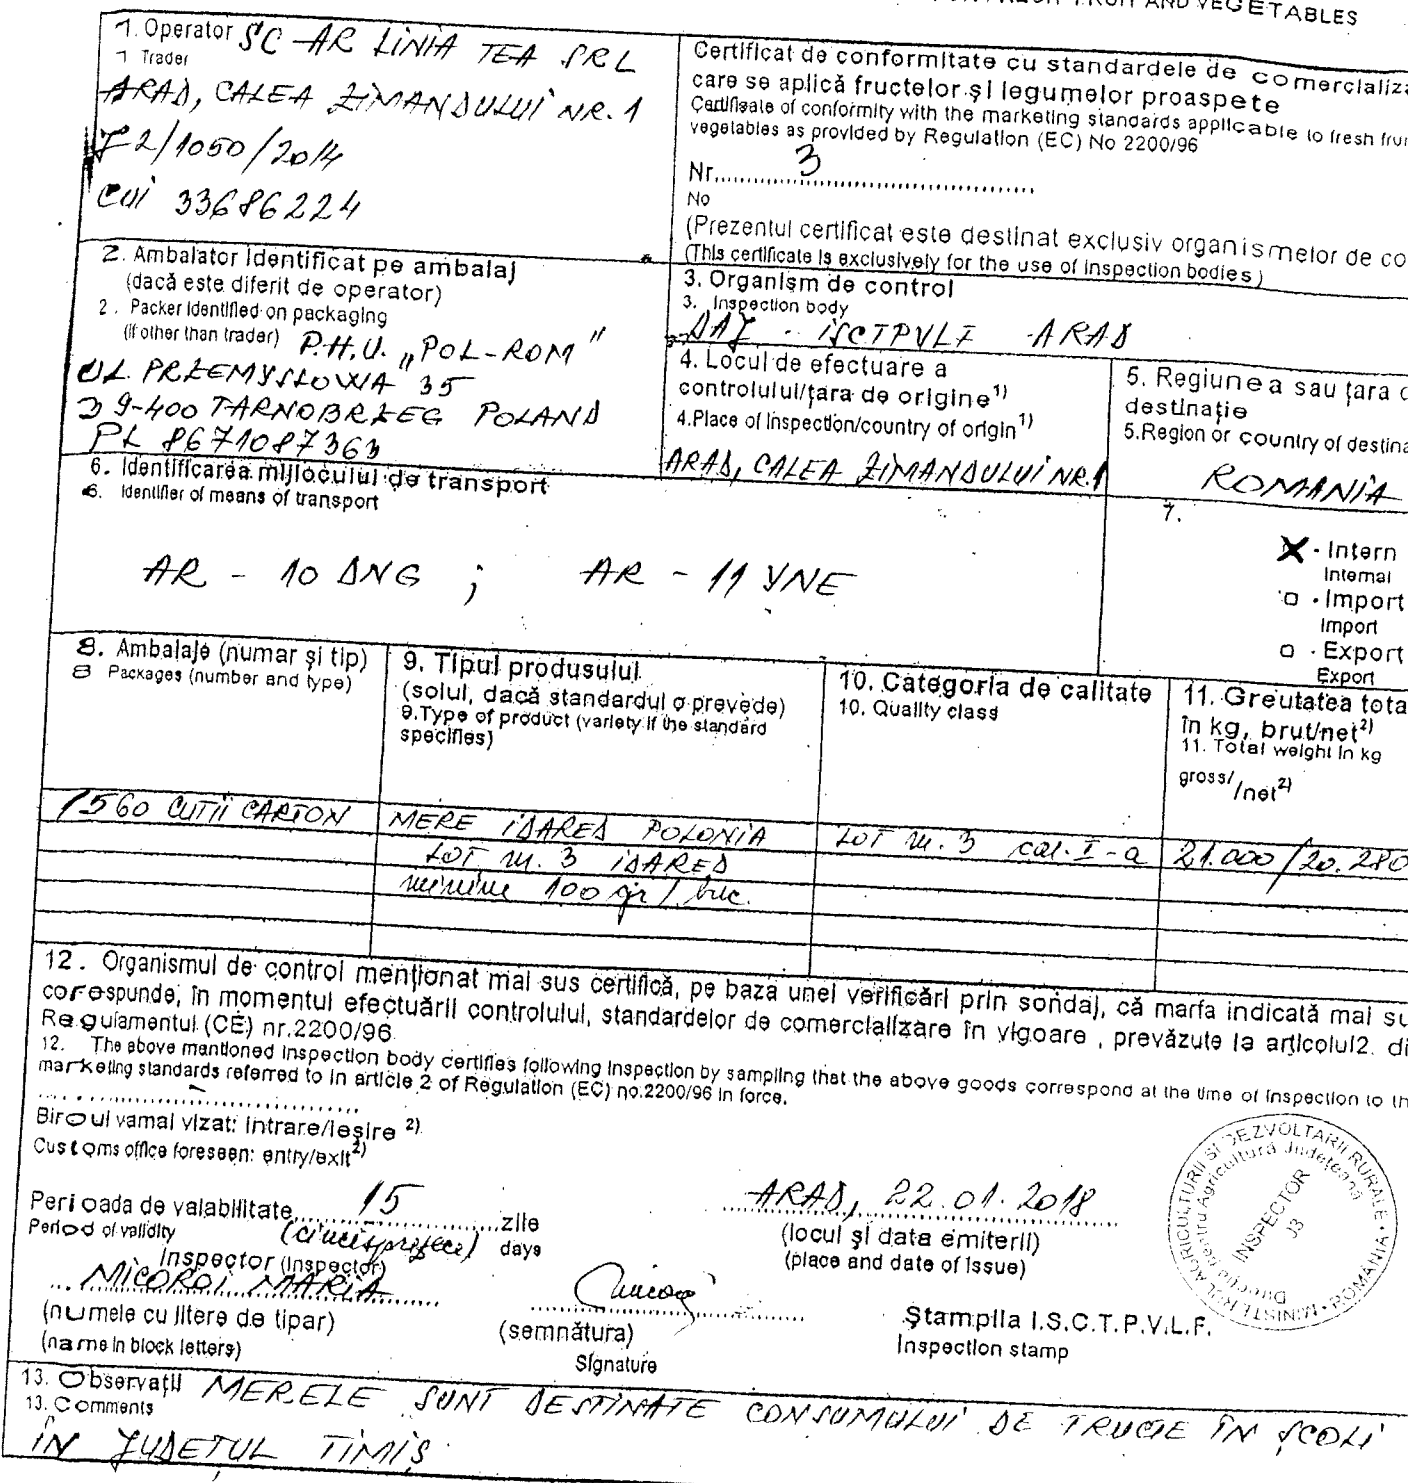 FRUIT AND VEGETABLES
1. Operator SC AR LINIA TEA SRL
1 Trader
ARAD, CALEA ZIMANDULUI NR. 1
J2/1050/2014
CUI 33686224
Certificat de conformitate cu standardele de comercializa
care se aplică fructelor şi legumelor proaspete
Certificate of conformity with the marketing standards applicable to fresh frui
vegetables as provided by Regulation (EC) No 2200/96
Nr. 3
No
(Prezentul certificat este destinat exclusiv organismelor de co
(This certificate is exclusively for the use of inspection bodies)
2. Ambalator identificat pe ambalaj
(dacă este diferit de operator)
2. Packer identified on packaging
(if other than trader) P.H.U. „POL-ROM"
UL. PRZEMYSLOWA 35
39-400 TARNOBRZEG POLAND
PL 8671087363
3. Organism de control
3. Inspection body
DAJ - ISCTPVLF - ARAD
4. Locul de efectuare a
controlului/ţara de origine1)
4.Place of inspection/country of origin1)
ARAD, CALEA ZIMANDULUI NR.1
5. Regiunea sau ţara d
destinaţie
5.Region or country of destina
ROMANIA
6. Identificarea mijlocului de transport
6. Identifier of means of transport
AR - 10 DNG ; AR - 11 YNE
7.
X - Intern
Internal
□ - Import
Import
□ - Export
Export
8. Ambalaje (numar şi tip)
8 Packages (number and type)
9. Tipul produsului
(soiul, dacă standardul o prevede)
9.Type of product (variety if the standard
specifies)
10. Categoria de calitate
10. Quality class
11. Greutatea tota
în kg, brut/net2)
11. Total weight in kg
gross/ /net2)
1560 CUTII CARTON MERE IDARED POLONIA LOT nr. 3 cal. I-a 21.000/20.280
LOT nr. 3 IDARED
minim 100 gr/buc.
12. Organismul de control menţionat mai sus certifică, pe baza unei verificări prin sondaj, că marfa indicată mai su
corespunde, în momentul efectuării controlului, standardelor de comercializare în vigoare , prevăzute la articolul2. di
Regulamentul (CE) nr.2200/96
12. The above mentioned inspection body certifies following inspection by sampling that the above goods correspond at the time of inspection to th
marketing standards referred to in article 2 of Regulation (EC) no.2200/96 in force.
Biroul vamal vizat: intrare/ieşire 2)
Customs office foreseen: entry/exit2)
Perioada de valabilitate 15 zile
Period of validity (cincisprezece) days
ARAD, 22.01.2018
(locul şi data emiterii)
(place and date of issue)
Inspector (Inspector)
MICOROI MARIA
(numele cu litere de tipar)
(name in block letters)
(semnătura)
Signature
Ştampila I.S.C.T.P.V.L.F.
Inspection stamp
MINISTERUL AGRICULTURII SI DEZVOLTARII RURALE • ROMÂNIA •
Direcţia pentru Agricultură Judeţeană
INSPECTOR
J3
13. Observaţii MERELE SUNT DESTINATE CONSUMULUI DE FRUCTE ÎN ŞCOLI
13. Comments
ÎN JUDEŢUL TIMIŞ